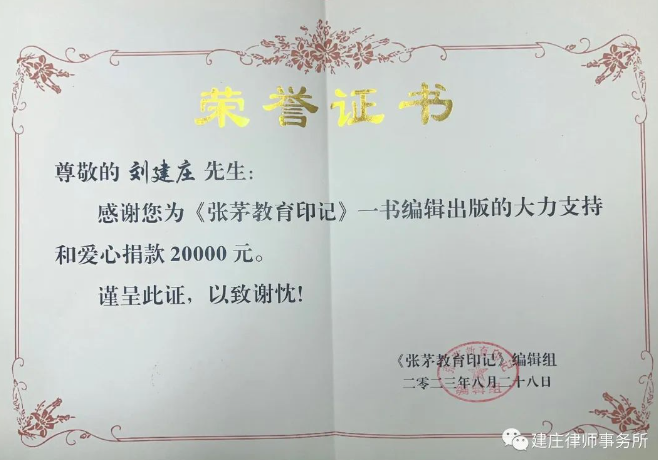 荣誉证书
尊敬的 刘建庄 先生:
感谢您为《张茅教育印记》一书编辑出版的大力支持
和爱心捐款 20000 元。
谨呈此证，以致谢忱!
《张茅教育印记》编辑组
二零二三年八月二十八日
建庄律师事务所